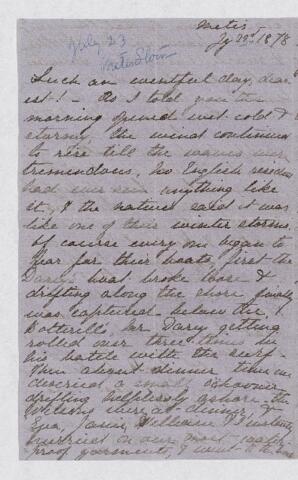 Metis
Jy 23rd 1878
July 23
Metis Storm
Such an eventful day, dear
est! - As I told you the
morning opened wet cold &
stormy. The wind continued
to rise till the waves were
tremendous, no English
had ever seen anything like
it, & the natives said it was
like one of their winter storms.
Of course every one began to
fear for their boats, first the
boat broke loose &
drifting along the shore, finally
was captured below the
Botterills, Mr getting
rolled over three times in
his battle with the surf.
Then about dinner time we
descried a small
drifting helplessly ashore. the
Wilsons were at dinner, &
Eva, William &
hurried on our most water-
proof garments, & went to the